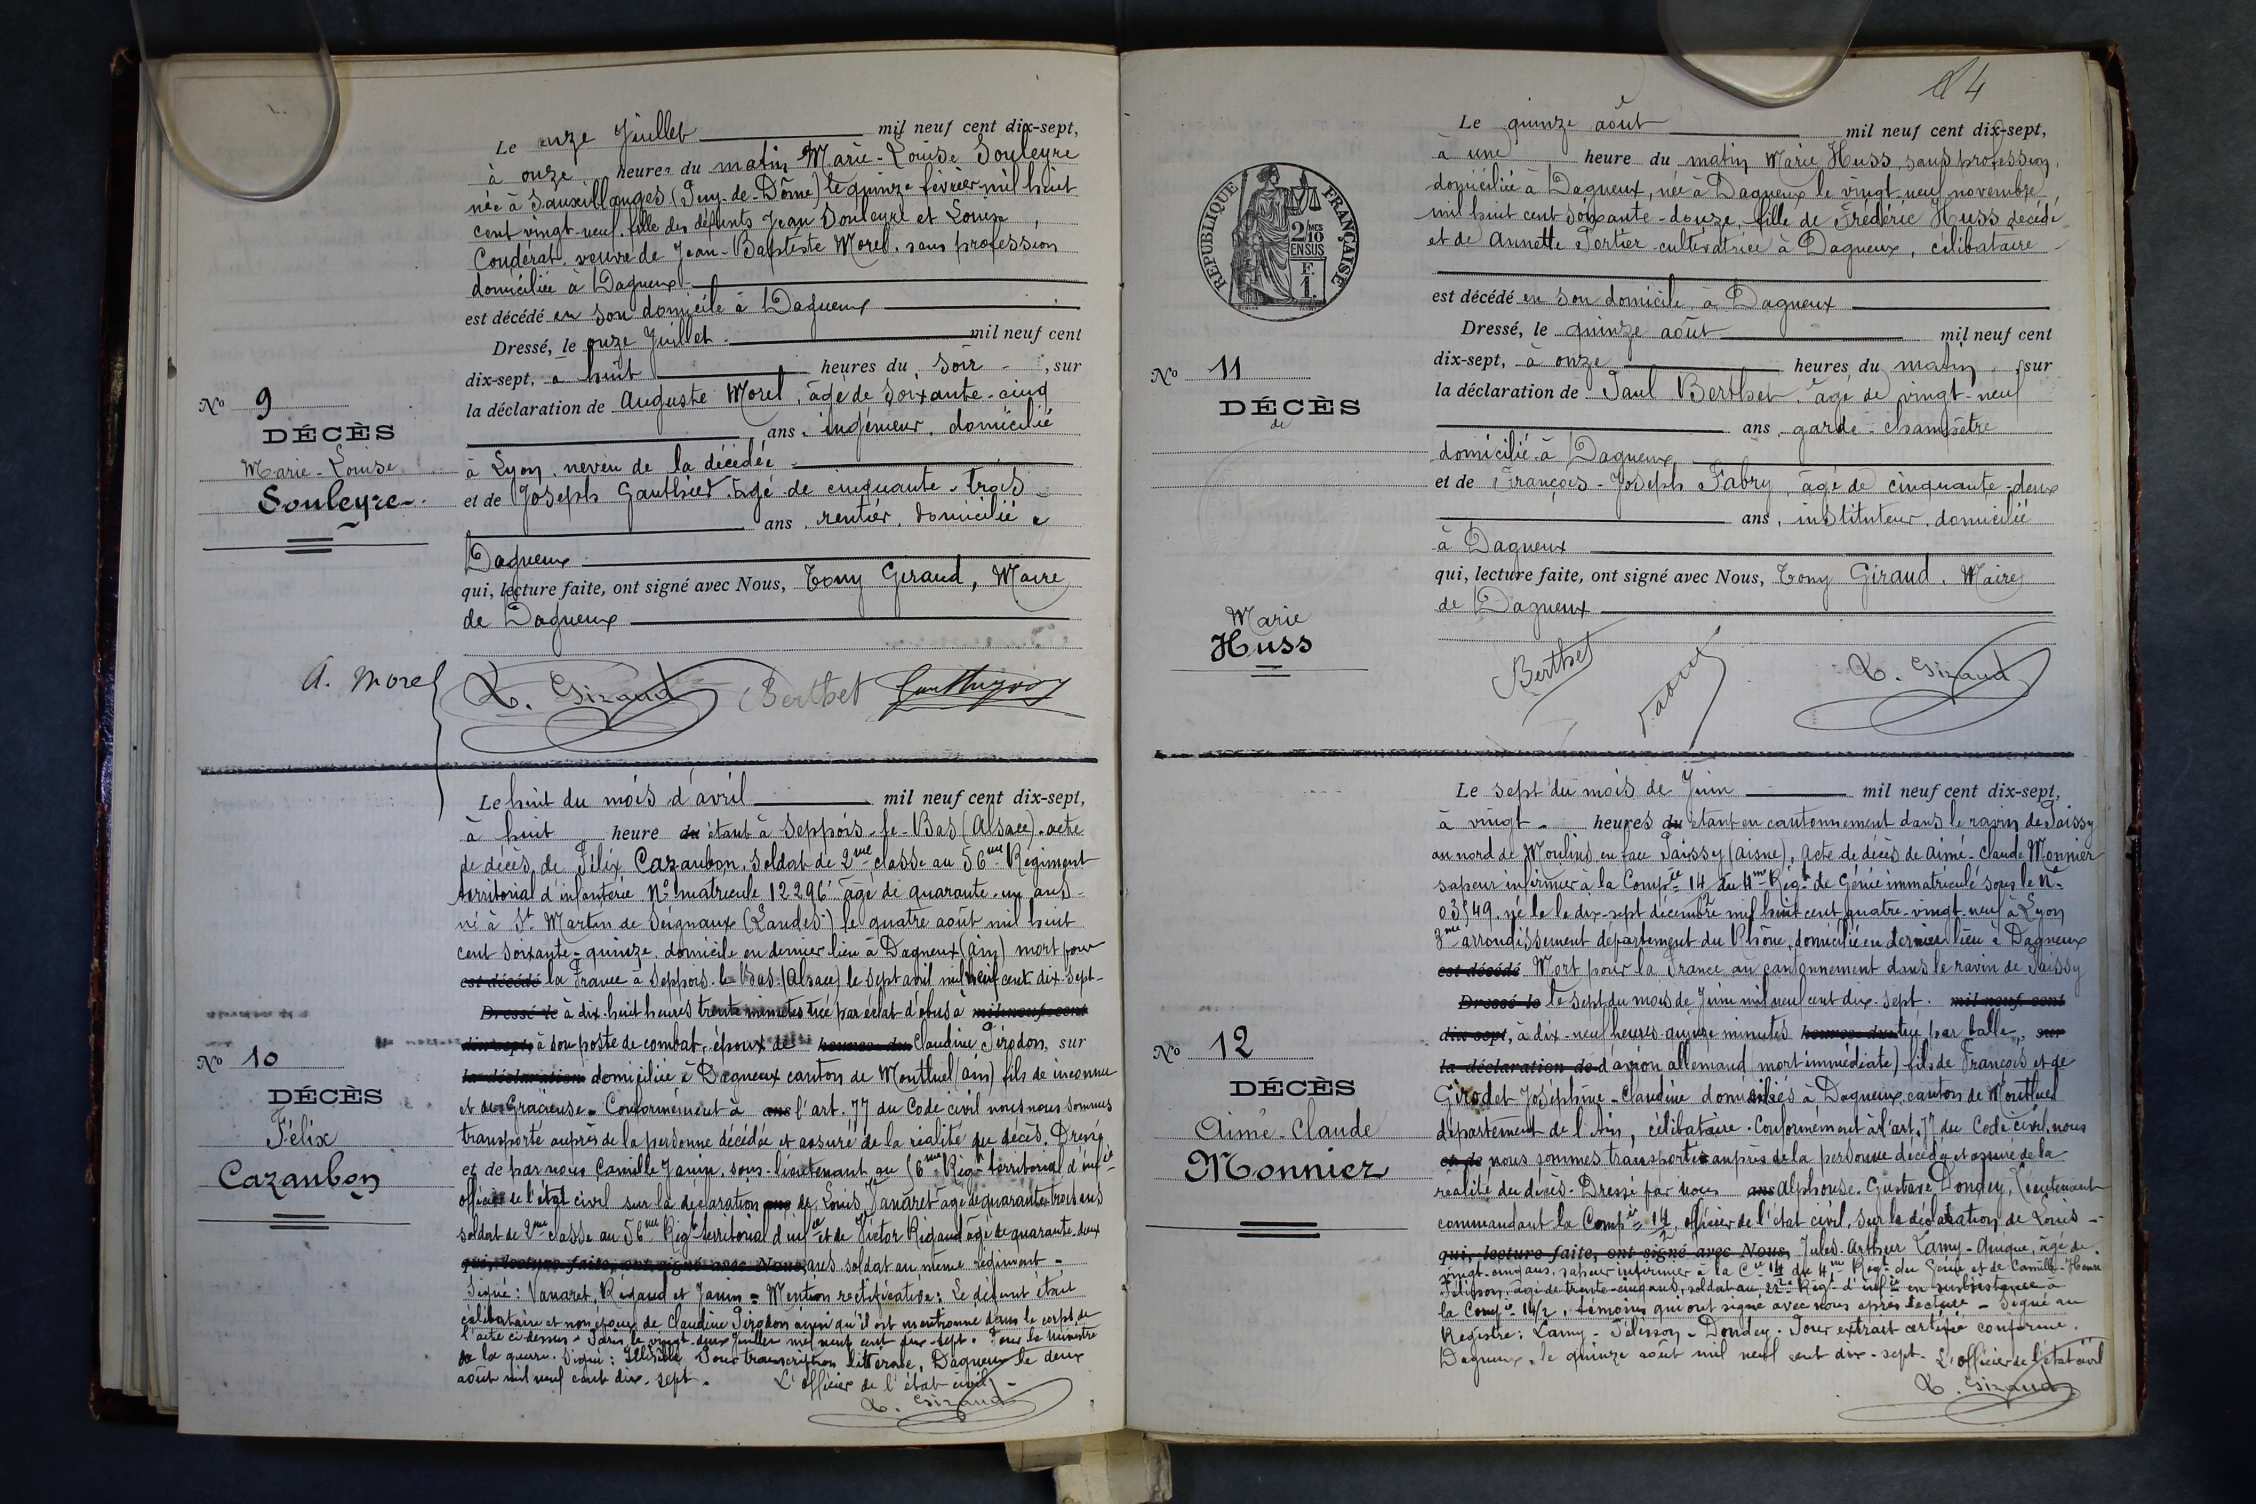 Le onze Juillet mil neuf cent dix-sept,
à onze heures du matin Marie-Louise Souleyre
née à Sauxillanges (Puy-de-Dôme) le quinze février mil huit
cent vingt-neuf, fille des défunts Jean Souleyre et Louise
Coudérat, veuve de Jean-Baptiste Morel, sans profession
domiciliée à Dagneux
est décédé en son domicile à Dagneux
Dressé, le onze Juillet mil neuf cent
dix-sept, à huit heures du soir, sur
la déclaration de Auguste Morel, âgé de soixante-cinq
ans, ingénieur, domicilié
à Lyon, neveu de la décédée
et de Joseph Gauthier âgé de cinquante-trois
ans, rentier, domicilié à
Dagneux
qui, lecture faite, ont signé avec Nous, Tony Giraud, Maire
de Dagneux
No 9
DÉCÈS
Marie-Louise
Souleyre
A. Morel T. Giraud Berthet
Le huit du mois d'avril mil neuf cent dix-sept,
à huit heure du étant à Seppois-le-Bas (Alsace). acte
de décès de Félix Cazaubon, soldat de 2me classe au 56me Régiment
territorial d'infanterie No matricule 12296 âgé de quarante-un ans
né à St Martin de Seignaux (Landes) le quatre août mil huit
cent soixante-quinze, domicile en dernier lieu à Dagneux (ain) mort pour
est décédé la France à Seppois-le-Bas (Alsace) le sept avril mil neuf cent dix-sept
Dressé le à dix-huit heures trente minutes tué par éclat d'obus à mil neuf cent
dix-sept, à son poste de combat, époux de heures du Claudine Pirodon, sur
la déclaration domiciliée à Dagneux canton de Montluel (ain) fils de inconnu
et de Gracieuse. Conformément à ans l'art. 77 du Code civil nous nous sommes
transporté auprès de la personne décédée et assuré de la réalité du décès. Dressé
et de par nous Camille Janin, sous-lieutenant au 56me Régt territorial d'infie
officier de l'état civil sur la déclaration ans de Louis Vanaret âgé de quarante trois ans
soldat de 2me classe au 56me Régt territorial d'infie et de Victor Rigaud âgé de quarante-deux
qui, lecture faite, ont signé avec Nous, ans soldat au même régiment
Signé : Vanaret, Rigaud et Janin = Mention rectificative : Le défunt était
célibataire et non époux de Claudine Pirodon ainsi qu'il est mentionné dans le corps de
l'acte ci-dessus. Paris le vingt-deux Juillet mil neuf cent dix-sept. Pour le Ministre
de la guerre. Signé : Pour transcription littérale, Dagneux le deux
août mil neuf cent dix-sept. L'officier de l'état civil
T. Giraud
No 10
DÉCÈS
Félix
Cazaubon
24
Le quinze août mil neuf cent dix-sept,
à une heure du matin Marie Huss, sans profession,
domiciliée à Dagneux, née à Dagneux le vingt-neuf novembre
mil huit cent soixante-douze, fille de Frédéric Huss décédé
et de Annette Portier cultivatrice à Dagneux, célibataire
est décédé en son domicile à Dagneux
Dressé, le quinze août mil neuf cent
dix-sept, à onze heures du matin, sur
la déclaration de Paul Berthet, âgé de vingt-neuf
ans, garde-champêtre
domicilié à Dagneux
et de François-Joseph Fabry, âgé de cinquante-deux
ans, instituteur, domicilié
à Dagneux
qui, lecture faite, ont signé avec Nous, Tony Giraud, Maire
de Dagneux
RÉPUBLIQUE FRANÇAISE
2 MES
10
EN SUS
F.
1.
No 11
DÉCÈS
de
Marie
Huss
Berthet Fabry T. Giraud
Le sept du mois de Juin mil neuf cent dix-sept,
à vingt heures du étant en cantonnement dans le ravin de Paissy
au nord de Moulins en face Paissy (Aisne), Acte de décès de Aimé-Claude Monnier
sapeur infirmier à la Compie 14 du 4me Régt de Génie immatriculé sous le No
03549, né le le dix-sept décembre mil huit cent quatre-vingt-neuf à Lyon
3me arrondissement département du Rhône, domicilié en dernier lieu à Dagneux
est décédé Mort pour la France au cantonnement dans le ravin de Paissy
Dressé le le sept du mois de Juin mil neuf cent dix-sept. mil neuf cent
dix-sept, à dix-neuf heures quinze minutes heures du tué par balle, sur
la déclaration de d'avion allemand (mort immédiate) fils de François et de
Girodet Joséphine-Claudine domiciliés à Dagneux canton de Montluel
département de l'Ain, célibataire. Conformément à l'art. 77 du Code civil, nous
et de nous sommes transporté auprès de la personne décédée et assuré de la
réalité du décès. Dressé par nous ans Alphonse-Gustave Dondey, lieutenant
commandant la Compie 14/2, officier de l'état civil, sur la déclaration de Louis
qui, lecture faite, ont signé avec Nous, Jules-Arthur Lamy-Quique, âgé de
vingt-cinq ans, sapeur infirmier à la Cie 14 du 4me Régt du Génie et de Camille-Henri
Pélisson, âgé de trente-cinq ans, soldat au 22me Régt d'infie en subsistance à
la Compie 14/2, témoins qui ont signé avec nous après lecture - Signé au
Registre : Lamy - Pélisson - Dondey. Pour extrait certifié conforme.
Dagneux, le quinze août mil neuf cent dix-sept. L'officier de l'état civil
T. Giraud
No 12
DÉCÈS
Aimé-Claude
Monnier